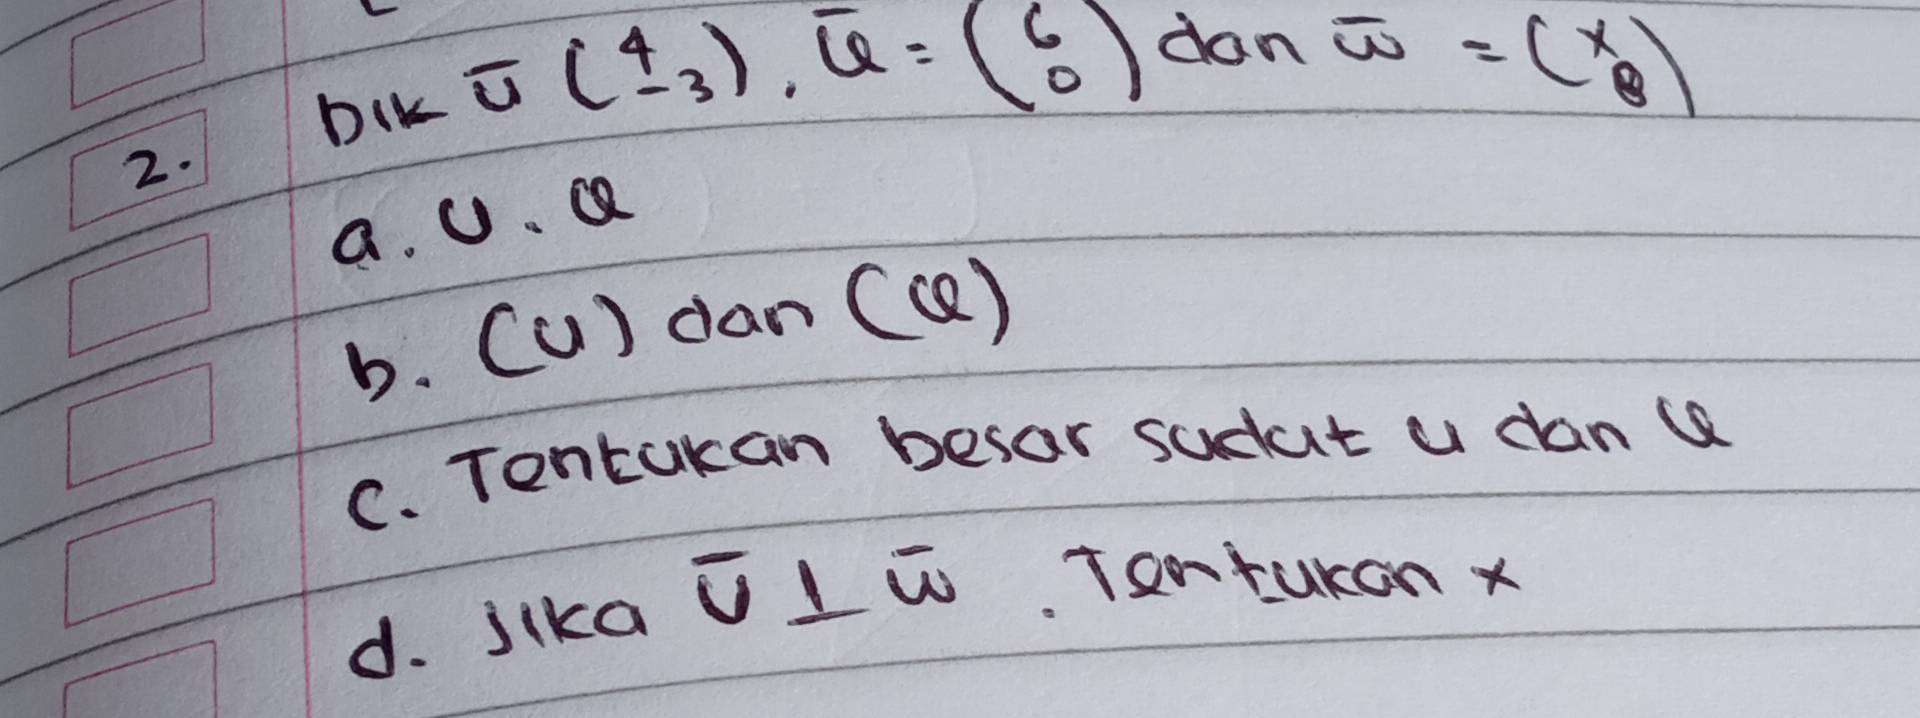 Dik ū (4 -3), v̄ = (6 0) dan w̄ = (x 8)
2.
a. u . v
b. (u) dan (v)
c. Tentukan besar sudut u dan v
d. Jika ū ⊥ w̄ . Tentukan x